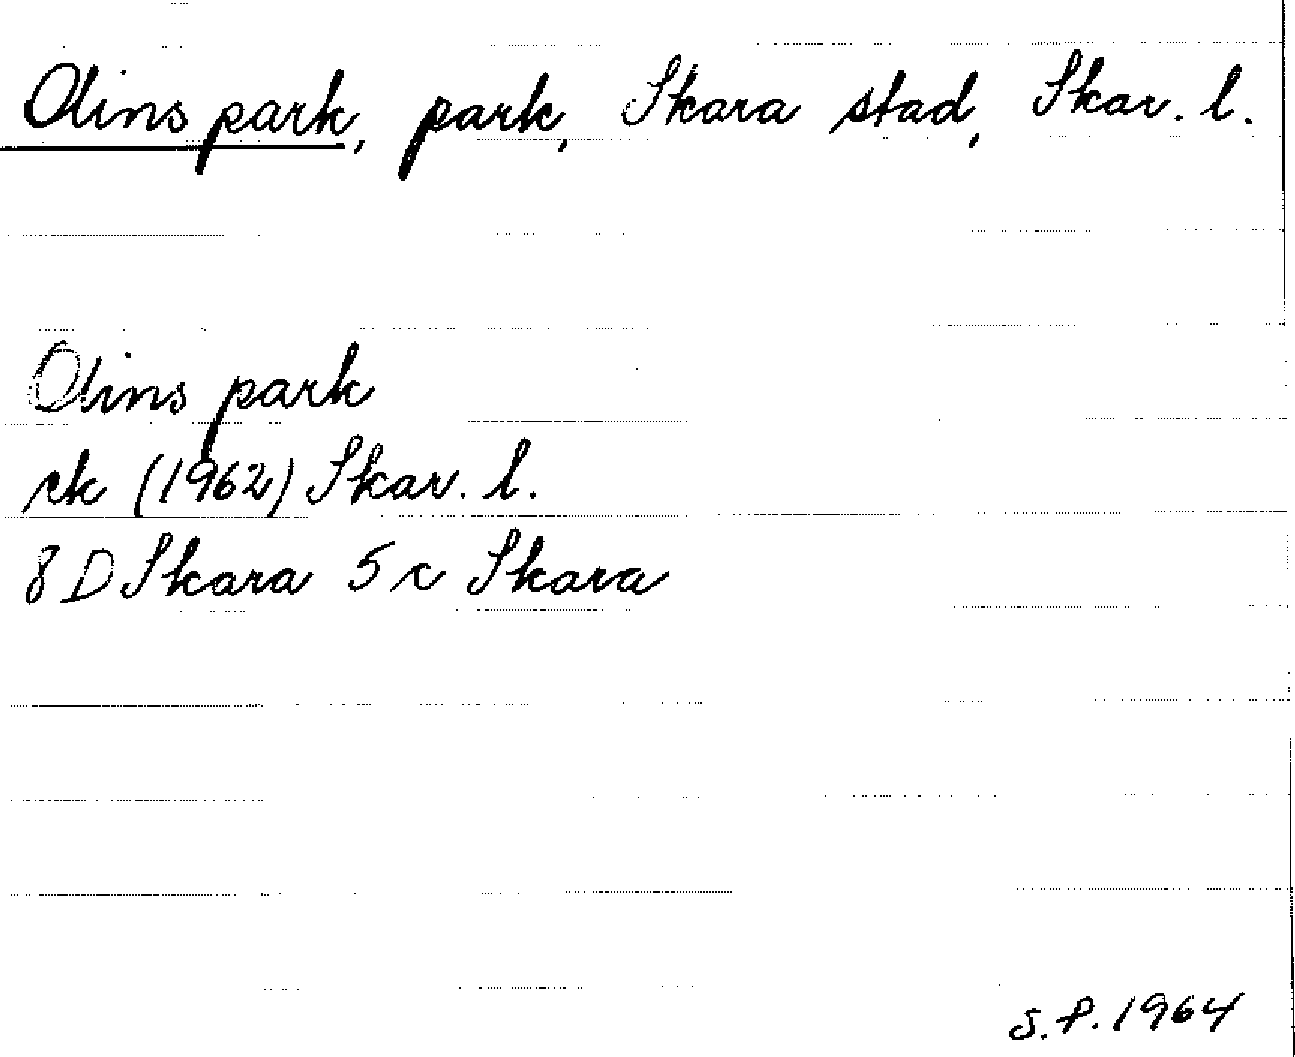 Olins park, park, Skara stad, Skar. l.
Olins park
ek (1962) Skar. l.
8 D Skara 5 c Skara
S.P. 1964